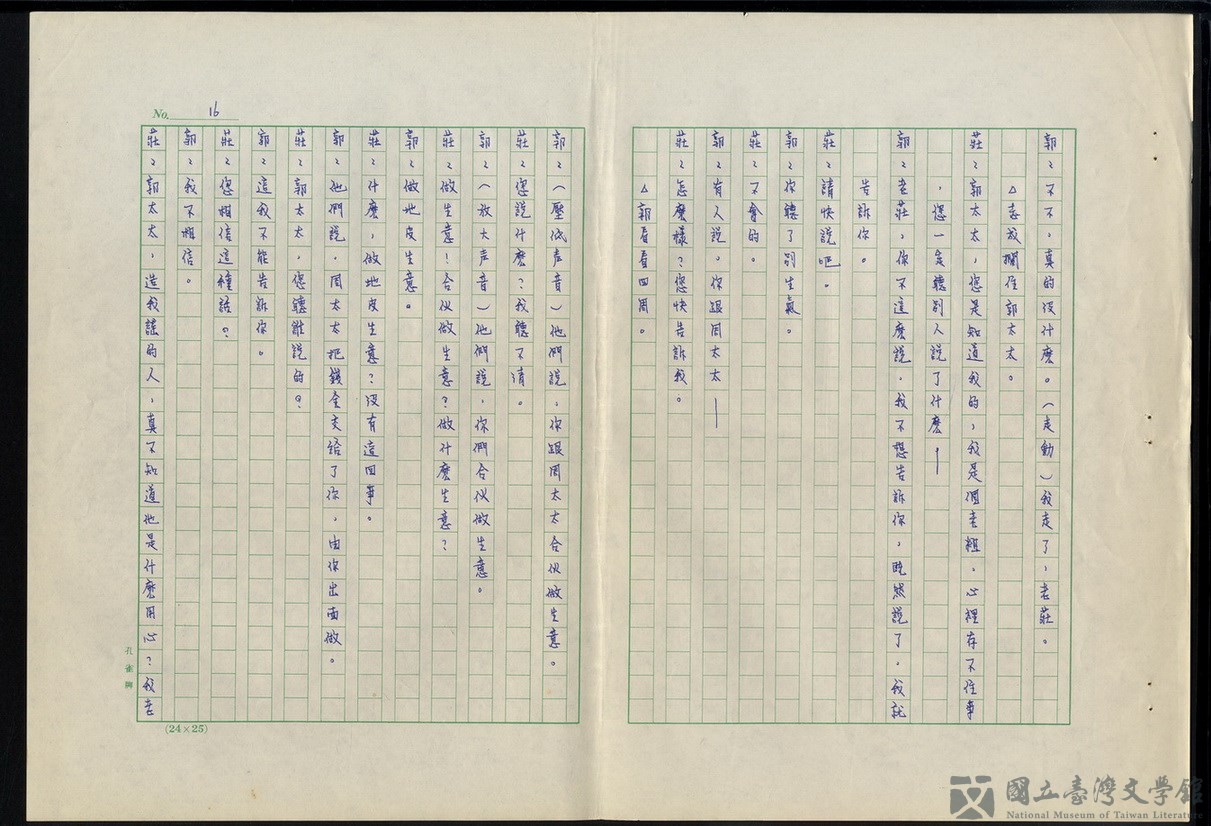 郭：不不，真的没什麽。（走動）我走了，老莊。
△志成攔住郭太太。
莊：郭太太，您是知道我的，我是個老粗，心裡存不住事
，您一定聽別人說了什麽──
郭：老莊，你不這麽說，我不想告訴你，既然說了，我就
告訴你。
莊：請快說吧。
郭：你聽了別生氣。
莊：不會的。
郭：有人說，你跟周太太──
莊：怎麽樣？您快告訴我。
△郭看看四周。
郭：（壓低声音）他們說，你跟周太太合伙做生意。
莊：您說什麽？我聽不清。
郭：（放大声音）他們說，你們合伙做生意。
莊：做生意！合伙做生意？做什麽生意？
郭：做地皮生意。
莊：什麽，做地皮生意？没有這回事。
郭：他們說，周太太把錢全交給了你，由你出面做。
莊：郭太太，您聽誰說的？
郭：這我不能告訴你。
莊：您相信這種話？
郭：我不相信。
莊：郭太太，造我謠的人，真不知道他是什麽用心？我老
No. 16
(24×25)
孔雀牌
國立臺灣文學館
National Museum of Taiwan Literature